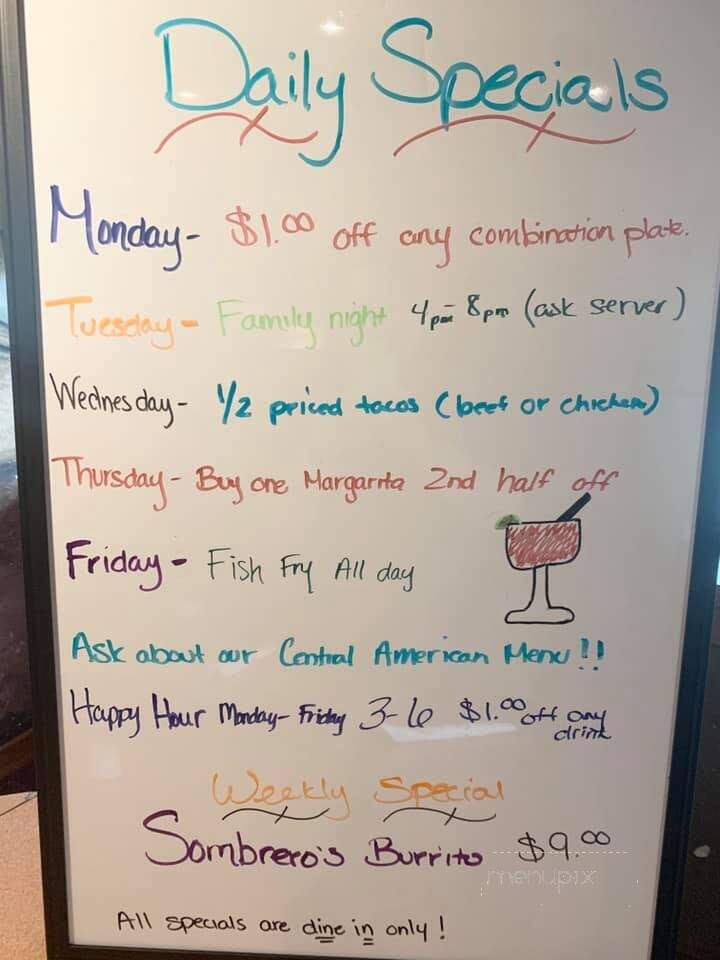 Daily Specials
Monday- $1.00 off any combination plate.
Tuesday- Family night 4pm- 8pm (ask server)
Wednesday- 1/2 priced tacos (beef or chicken)
Thursday- Buy one Margarita 2nd half off
Friday- Fish Fry All day
Ask about our Central American Menu!!
Happy Hour Monday- Friday 3-6 $1.00 off any
drink
Weekly Special
Sombrero's Burrito $9.00
menupix
All specials are dine in only!